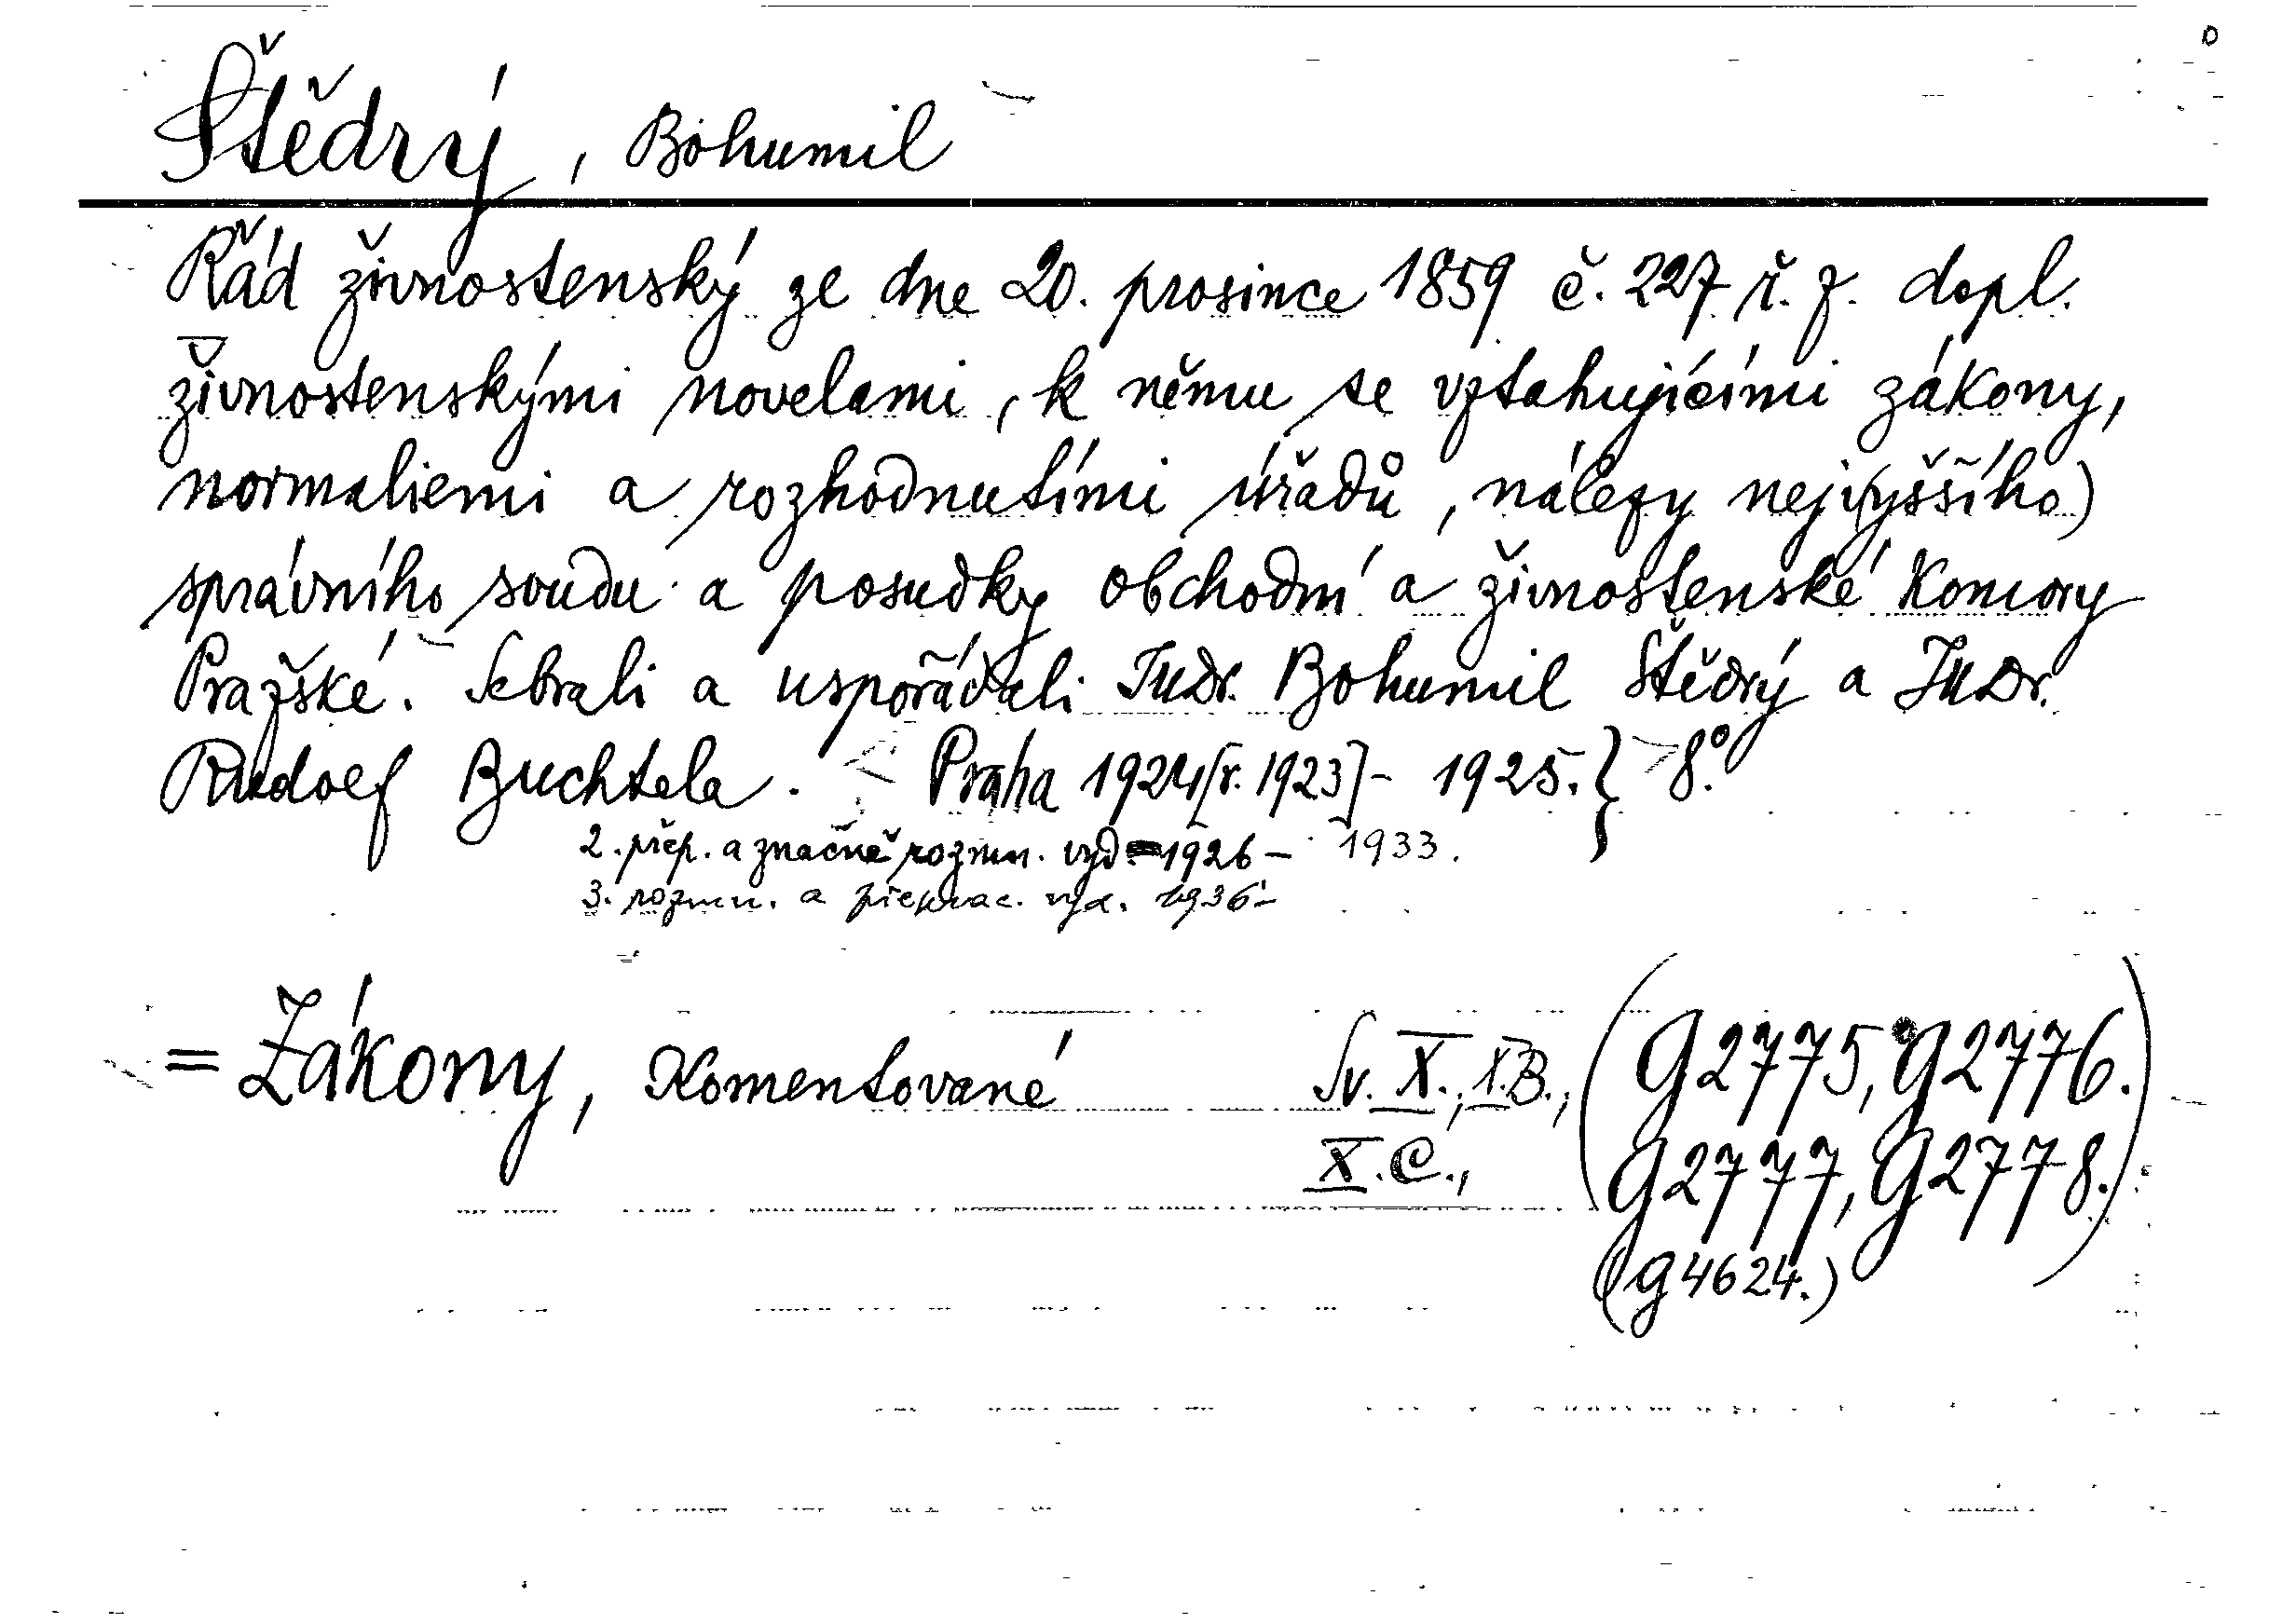 Štědrý, Bohumil
Řád živnostenský ze dne 20. prosince 1859 č. 227 ř. z. dopl.
živnostenskými novelami, k němu se vztahujícími zákony,
normaliemi a rozhodnutími úřadů, nálezy nej(vyššího)
správního soudu a posudky obchodní a živnostenské Komory
Pražské. Sebrali a uspořádali JuDr. Bohumil Štědrý a JuDr.
Rudolf Buchtela. Praha 1924 [r. 1923] - 1925. } 8.°
2. přep. a značně rozmn. vyd. 1926 - 1933.
3. rozmn. a přeprac. vyd. 1936 -
= Zákony, Komentované Sv. X., X.B., (g 2775, g 2776.
X.C., g 2777, g 2778.)
(g 4624.)